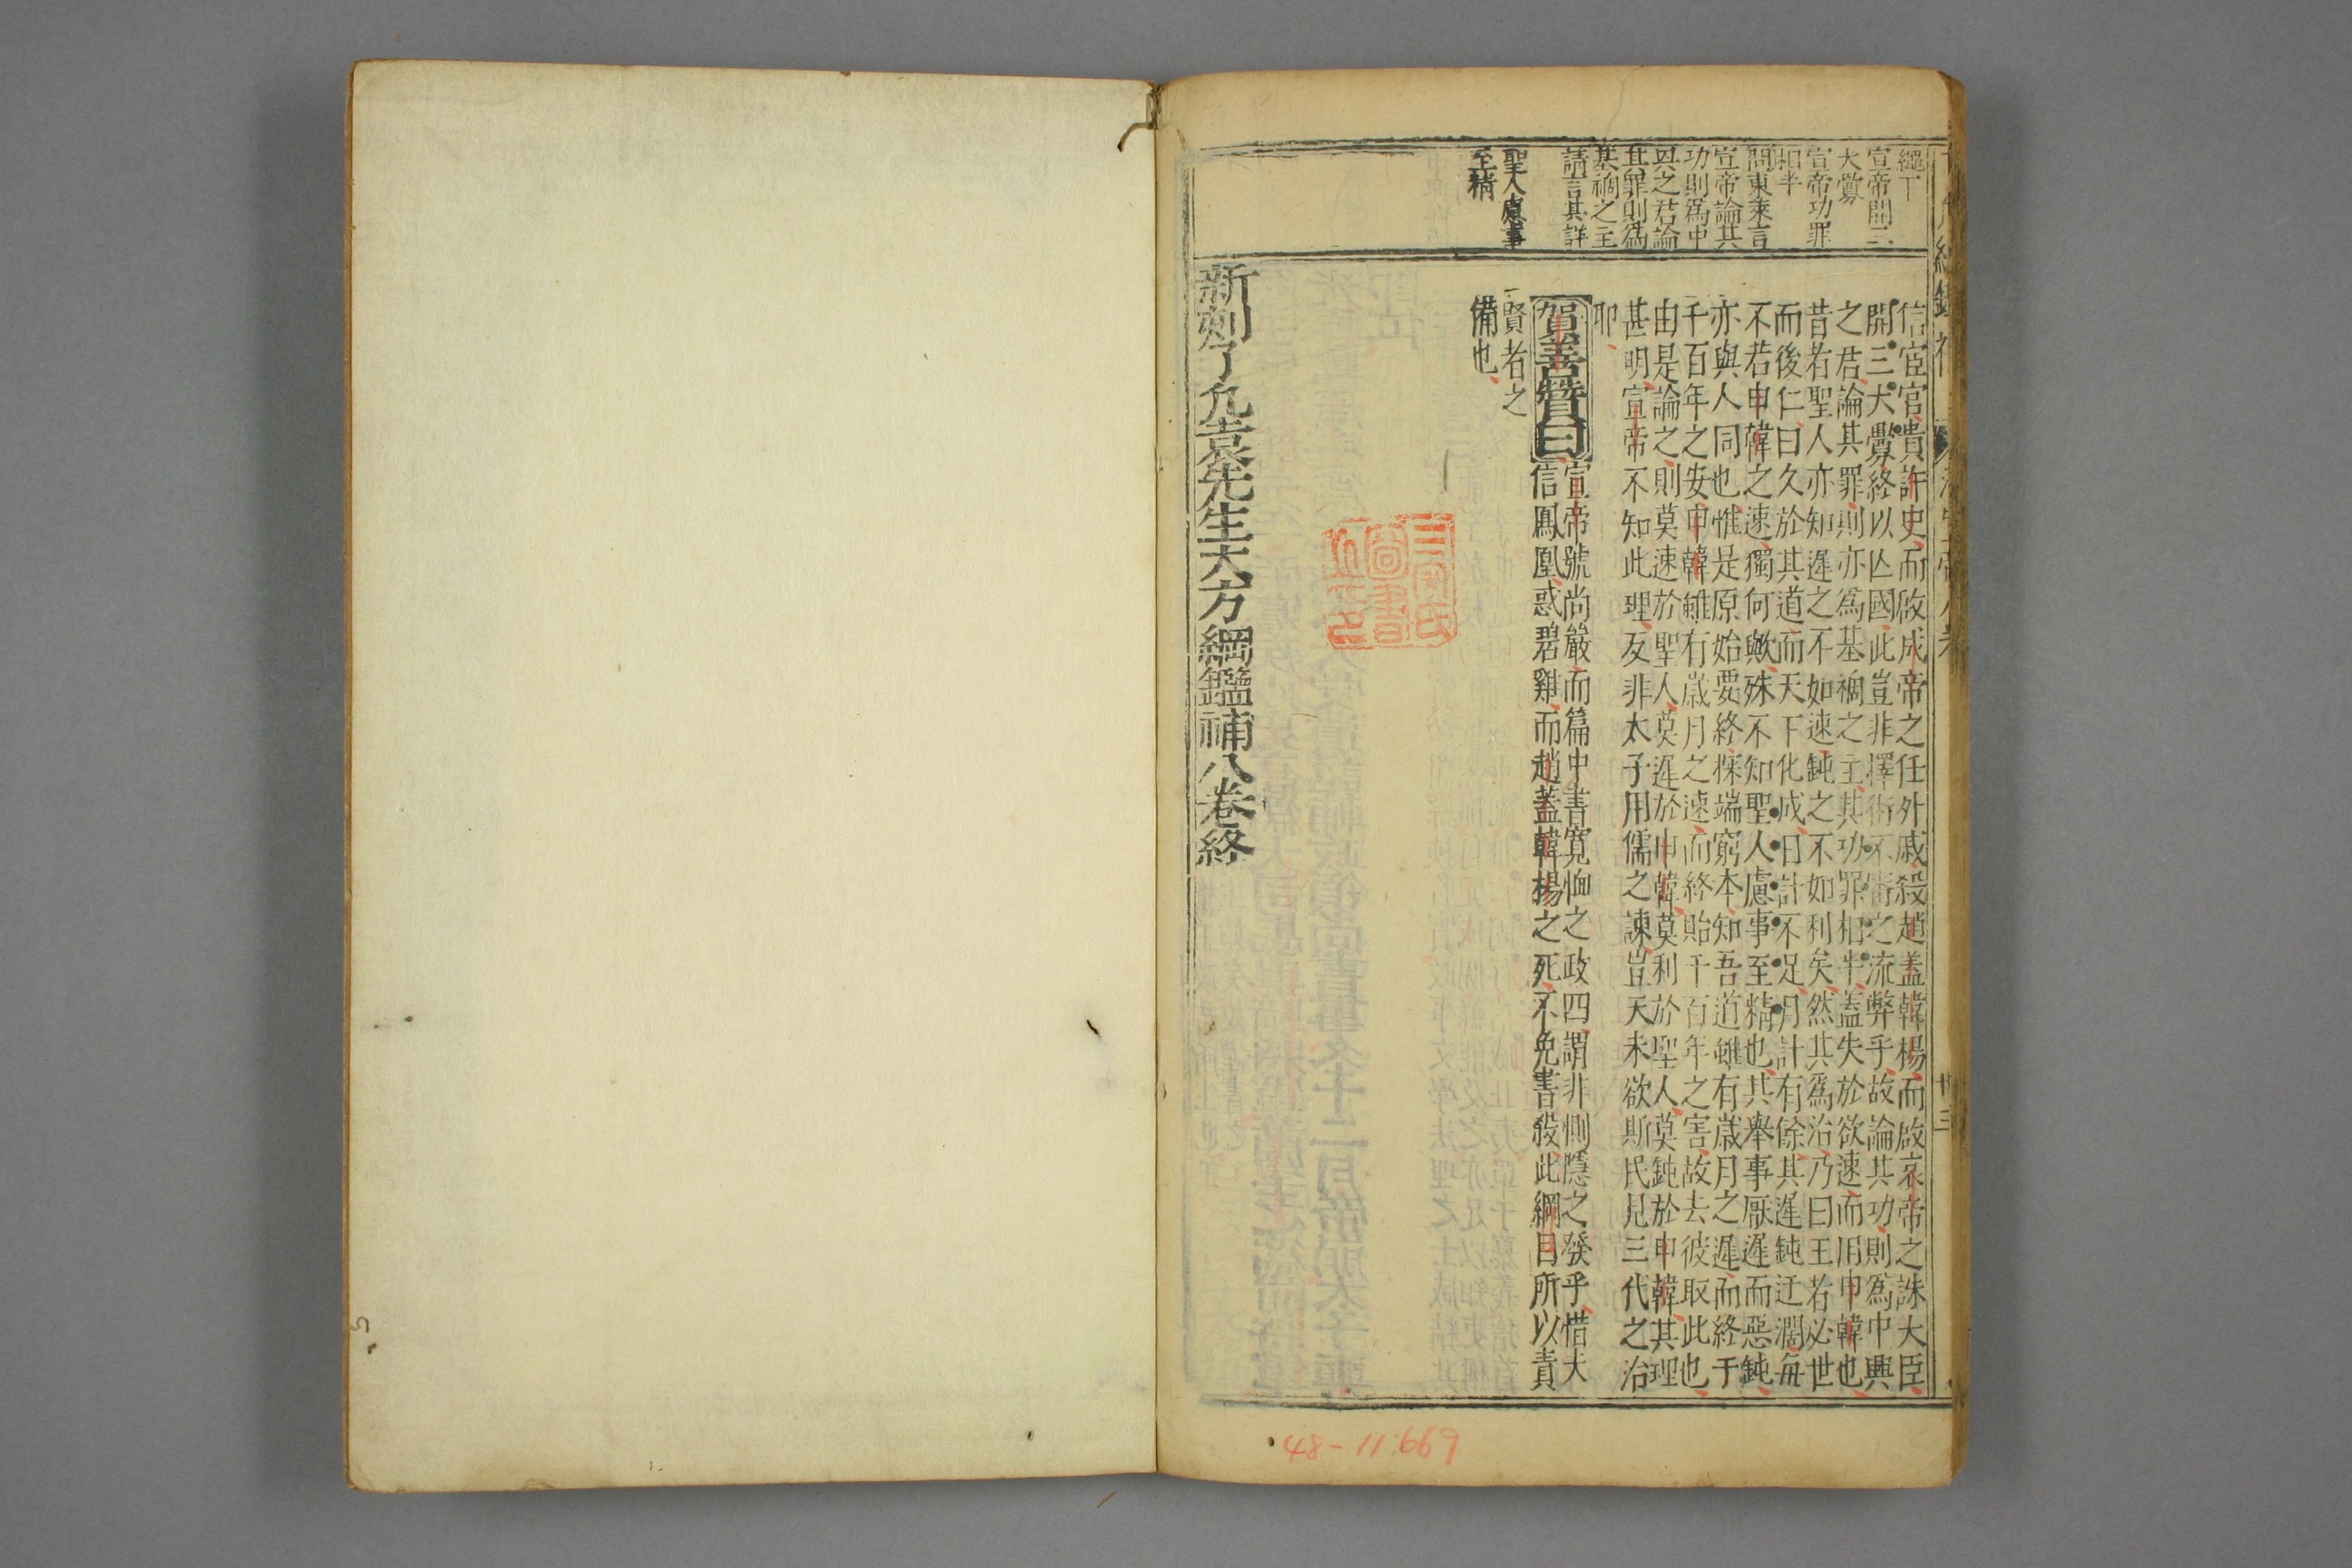 信宦官貴許史而啟成帝之任外戚殺趙蓋韓楊而啟哀帝之誅大臣
開三大釁終以亾國此豈非擇術不審之流弊乎故論其功則為中興
之君論其罪則亦為基禍之主其功罪相半蓋失於欲速而用申韓也
昔者聖人亦知遲之不如速鈍之不如利矣然其為治乃曰王者必世
而後仁曰久於其道而天下化成日計不足月計有餘其遲鈍迂濶每
不若申韓之速獨何歟殊不知聖人慮事至精也其舉事厭遲而惡鈍
亦與人同也惟是原始要終探端窮本知吾道雖有歲月之遲而終于
千百年之安申韓雖有歲月之速而終貽千百年之害故去彼取此也
由是論之則莫速於聖人莫遲於申韓莫利於聖人莫鈍於申韓其理
甚明宣帝不知此理反非太子用儒之諫豈天未欲斯民見三代之治
耶
賀善贊曰
宣帝號尚嚴而篇中書寬恤之政四謂非惻隱之發乎惜夫
信鳳凰惑碧雞而趙蓋韓楊之死不免書殺此綱目所以責
賢者之
備也
新刻了凡袁先生大方綱鑑補八卷終
宣帝開三
大釁
宣帝功罪
相半
問東萊言
宣帝論其
功則為中
興之君論
其罪則為
基禍之主
請言其詳
聖人慮事
至精
廿三
48-11.669